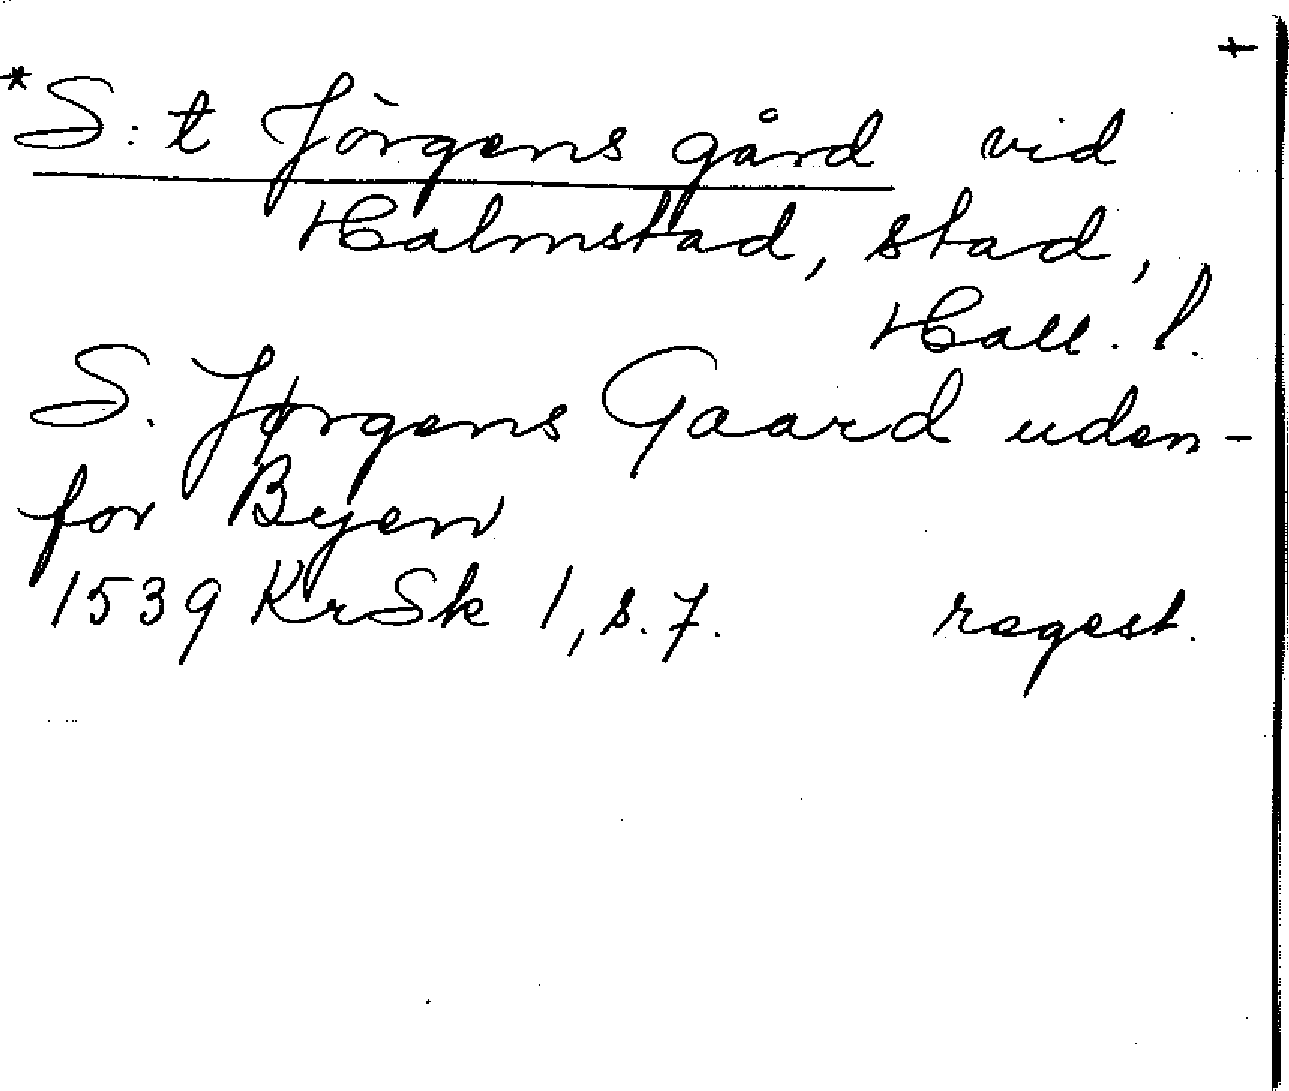 +
*S:t Jörgens gård vid
Halmstad, stad,
Hall. l.
S. Jørgens Gaard uden-
for Byen
1539 KrSk 1, s. 7. regest.